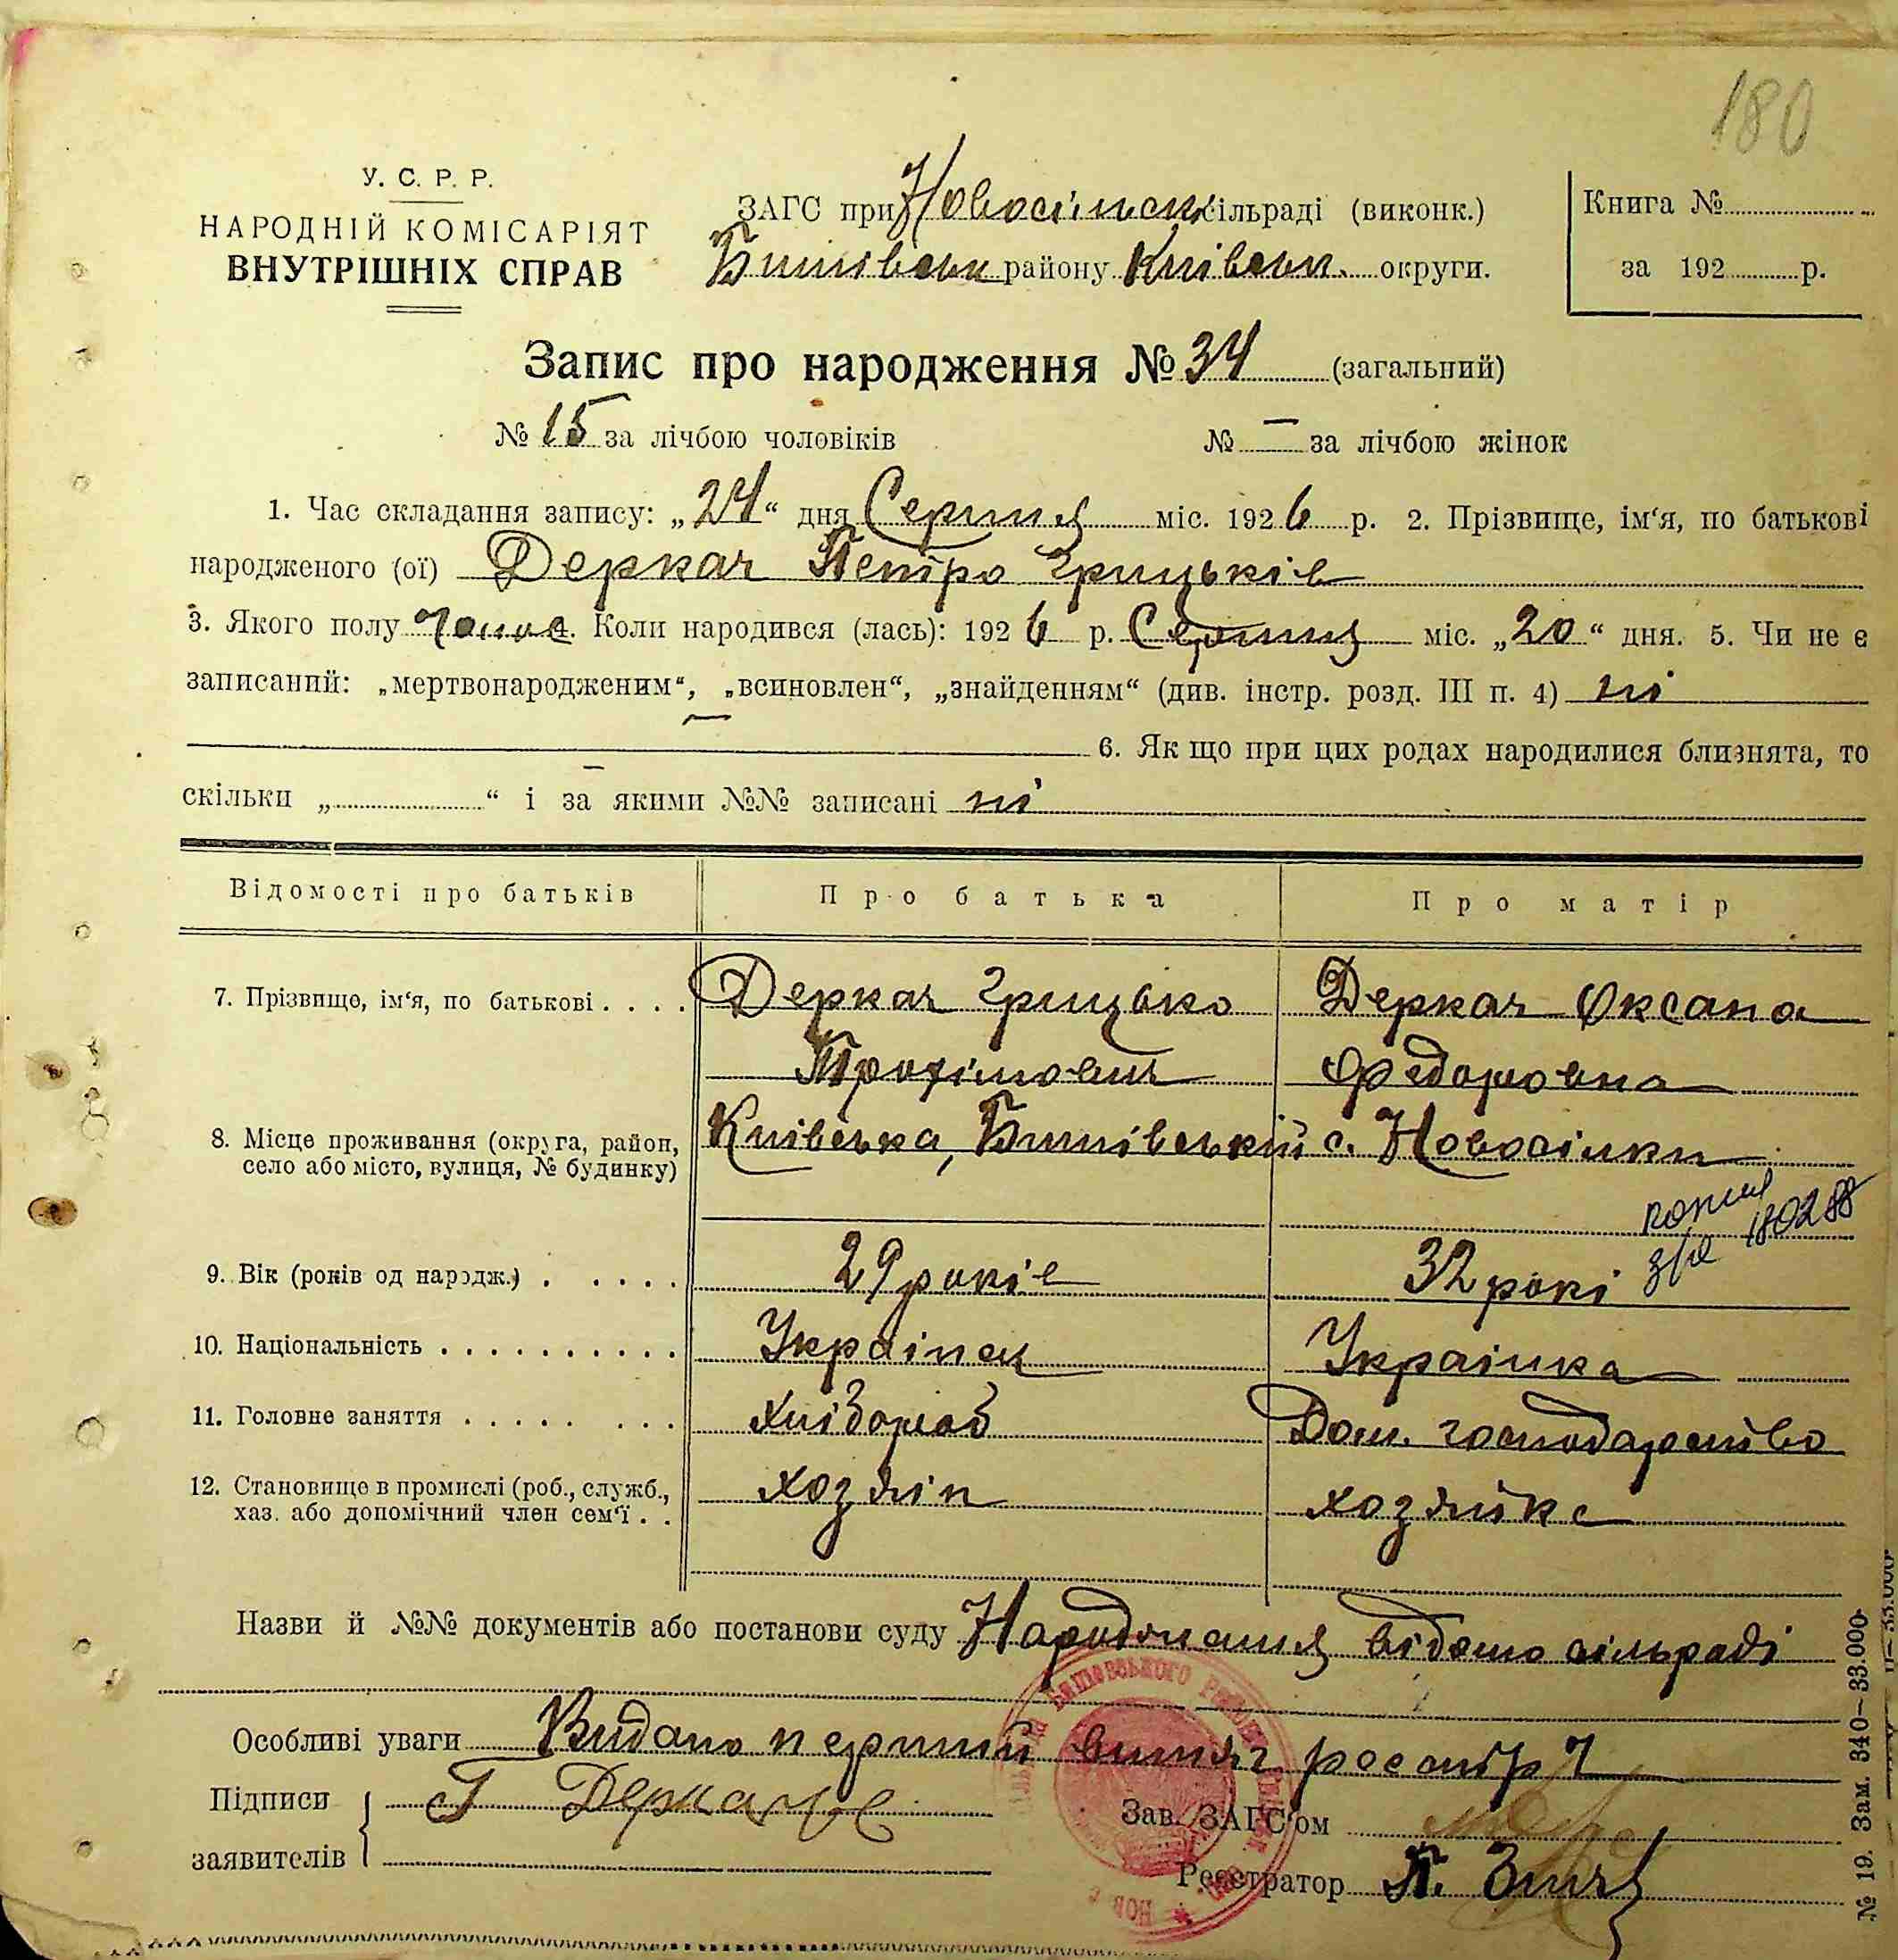 180
У. С. Р. Р.
НАРОДНІЙ КОМІСАРІЯТ
ВНУТРІШНІХ СПРАВ
ЗАГС при Новосільськ сільраді (виконк.)
Бишівськ району Київськ. округи.
Книга №
за 192 р.
Запис про народження № 34 (загальний)
№ 15 за лічбою чоловіків № — за лічбою жінок
1. Час складання запису: „24“ дня Серпня міс. 1926 р. 2. Прізвище, ім‘я, по батькові
народженого (ої) Деркач Петро Грицьків
3. Якого полу чолов. Коли народився (лась): 1926 р. Серпня міс. „20“ дня. 5. Чи не є
записаний: „мертвонародженим“, „всиновлен“, „знайденням“ (див. інстр. розд. III п. 4) ні
6. Як що при цих родах народилися близнята, то
скільки „ — “ і за якими №№ записані ні
Відомості про батьків Про батька Про матір
7. Прізвище, ім‘я, по батькові . . . . Деркач Грицько Деркач Оксана
Трохімович Федоровна
8. Місце проживання (округа, район, село або місто, вулиця, № будинку) Київська, Бишівський с. Новосілки
копия
180288
9. Вік (років од нарэдж.) . . . . . 29 років 32 рокі
10. Національність . . . . . . . . . . Українец Українка
11. Головне заняття . . . . . . . . Хлібороб Дом. господарство
12. Становище в промислі (роб., служб., хозяін хозяйка
хаз. або допомічний член сем‘ї . .
Назви й №№ документів або постанови суду Народження відомо сільраді
Особливі уваги Видано перший витяг реєстр 7
Підписи Г Деркач
заявителів
Зав. ЗАГС‘ом
Реєстратор П.
№ 19. Зам. 340—33.000